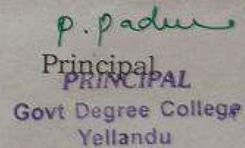 p. padm
Principal
PRINCIPAL
Govt Degree College
Yellandu